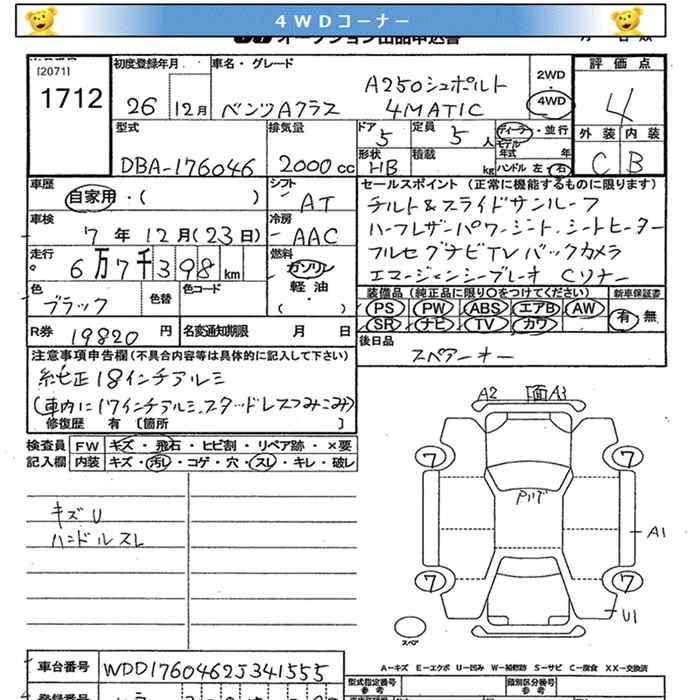 4WDコーナー
オークション出品申込書
[2071]
1712
初度登録年月
26 12月
車名・グレード
ベンツAクラス
A250シュポルト
4MATIC
2WD
・
4WD
評価点
4
外装 内装
C B
型式
DBA-176046
排気量
2000cc
ドア 5
定員 5人
形状 HB
積載 kg
ディーラー・並行
モデル年式 年
ハンドル 左・右
車歴
自家用・( )
シフト
AT
セールスポイント (正常に機能するものに限ります)
チルト&スライドサンルーフ
ハーフレザーパワーシート、シートヒーター
フルセグナビTVバックカメラ
エマージェンシーブレーキ Cソナー
車検
7年12月(23日)
冷房
AAC
走行
6万7千398km
燃料
ガソリン
軽油
・( )
色
ブラック
色替
色コード
装備品(純正品に限り○をつけてください)
PS PW ABS エアB AW
SR ナビ TV カワ
新車保証書
有・無
R券 19820円
名変通知期限 月 日
後日品
スペアーキー
注意事項申告欄(不具合内容等は具体的に記入して下さい)
純正18インチアルミ
(車内に17インチアルミ、スタッドレスつみこみ)
修復歴 有 〔箇所 〕
検査員記入欄
FW キズ・飛石・ヒビ割・リペア跡・×要
内装 キズ・汚レ・コゲ・穴・スレ・キレ・破レ
キズU
ハンドルスレ
A2 A3
7 7
A1
7 7
U1
スペア
A-キズ E-エクボ U-凹み W-補修跡 S-サビ C-腐食 XX-交換済
車台番号 WDD1760462J341555
型式指定番号
参考
類別区分番号
参考
登録番号